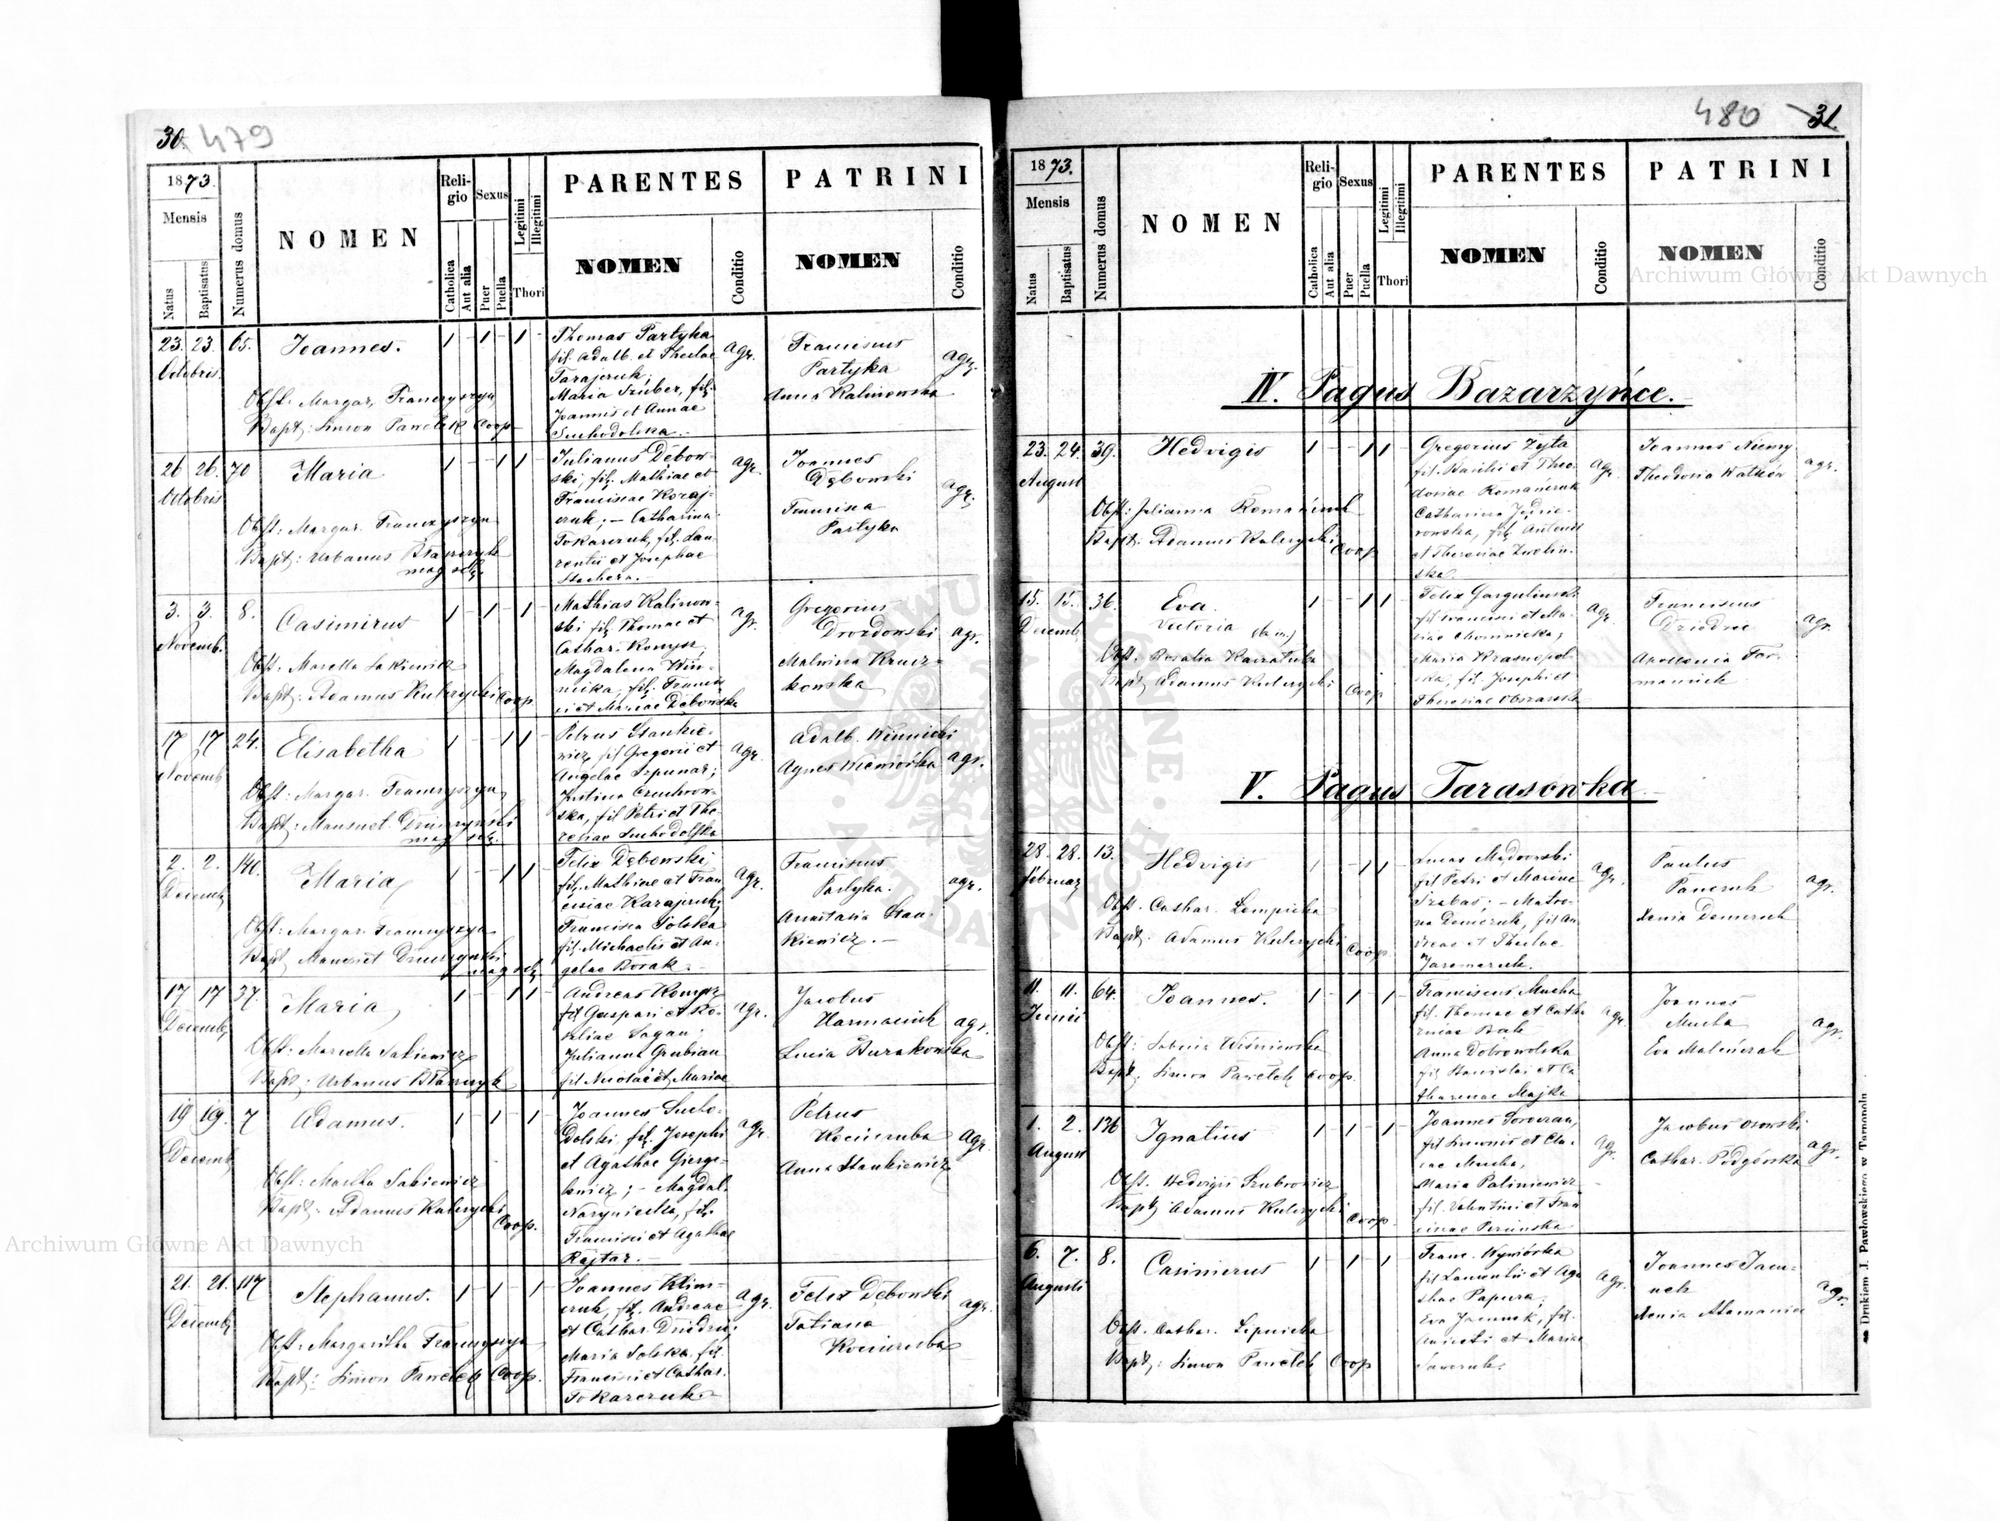 30. 479
1873.
Mensis
Natus
Baptisatus
Numerus domus
NOMEN
Religio
Catholica
Aut alia
Sexus
Puer
Puella
Legitimi
Illegitimi
Thori
PARENTES
NOMEN
Conditio
PATRINI
NOMEN
Conditio
23. 23. 65.
Octobris.
Joannes.
Obst: Margar. Franczyszyn
Bapt: Simon Pawełek Coop
Thomas Partyka
fil. Adalb. et Theclae
Maria Szuber, fil.
Joannis et Annae
Suchodolska.
agr.
Franciscus
Partyka
Anna Kalinowska
agr.
26 26. 70
Octobris
Maria
Obst: Margar. Franczyszyn
Bapt: Urbanus
Julianus Dębow-
ski, fil. Mathiae et
Franciscae Karaj-
czuk; – Catharina
Tokarczuk, fil. Lau-
rentii et Josephae
Stachera.
agr.
Joannes
Dębowski
Francisca
Partyka
agr.
3. 3. 8.
Novemb.
Casimirus
Obst: Marella Sakiewicz
Bapt: Adamus Kulczycki Coop
Mathias Kalinow-
ski fil. Thomae et
Cathar. Konysz,
Magdalena Win-
nicka, fil. Francis-
ci et Mariae Dębowska
agr.
Gregorius
Drozdowski
Malwina Krucz-
kowska
agr.
17 17 24.
Novemb
Elisabetha
Obst: Margar. Franczyszyn
Bapt: Mansuet.
Petrus Stankie-
wicz, fil Gregorii et
Angelae Szpunar;
Justina
ska, fil Petri et The-
resiae Suchodolska
agr.
Adalb. Winnicki
Agnes
agr.
2. 2. 140.
Decemb
Maria
Obst: Margar. Franczyszyn
Bapt Mansuet
Felix Dębowski,
fil. Mathiae et Fran-
ciscae
Francisca Solska
fil. Michaelis et An-
gelae Borak.
agr.
Franciscus
Partyka.
Anastasia Stan-
kiewicz.
agr.
17 17 37.
Decemb
Maria
Obst: Marella Sakiewicz
Bapt: Urbanus
Andreas Konysz
fil Gaspari et Ro-
saliae Sagan;
Julianna Grubian
fil Nicolai et Mariae
agr.
Jacobus
Harmaciuk
Lucia Burakowska
agr.
19 19. 7
Decemb
Adamus.
Obst: Marella Sakiewicz
Bapt: Adamus Kulczycki
Coop.
Joannes Sucho-
dolski, fil. Josephi
et Agathae Gierge-
lewicz; – Magdal.
fil.
Francisci et Agathae
Rajtar.
agr.
Petrus
Kocieruba
Anna Stankiewicz
agr.
21. 21. 117
Decemb
Stephanus.
Obst: Margaritha Franczyszyn
Bapt: Simon Pawełek Coop.
Joannes Klim-
czuk, fil. Andreae
et Cathar.
Maria Solska, fil.
Francisci et Cathar.
Tokarczuk
agr.
Felix Dębowski
Tatiana
Kocieruba
agr.
480 31.
1873.
Mensis
Natus
Baptisatus
Numerus domus
NOMEN
Religio
Catholica
Aut alia
Sexus
Puer
Puella
Legitimi
Illegitimi
Thori
PARENTES
NOMEN
Conditio
PATRINI
NOMEN
Conditio
IV. Pagus Bazarzyńce.
23. 24. 39.
August
Hedvigis
Obst: Julianna Romańczuk
Bapt: Adamus Kulczycki
Coop
Gregorius Żyta
fil. Basilii et Theo-
dosiae Romańczuk
Catharina Jędrze-
rowska, fil. Antonii
et Theresiae Zwolin-
ska.
agr.
Joannes Niemy
Theodosia Watków
agr.
15. 15. 36.
Decemb
Eva.
Victoria
Obst. Rosalia
Bapt Adamus Kulczycki
Coop
Felix
fil Francisci et Ma-
riae Chominicka,
Maria Krasnopol-
ska, fil. Josephi et
Theresiae Obszarska
agr.
Franciscus
Apollonia
agr.
V. Pagus Tarasowka
28. 28. 13.
Februar
Hedvigis
Obst. Cathar. Lempicka
Bapt: Adamus Kulczycki
Coop
Lucas
fil Petri et Marinae
Szabas; – Matro-
na Demczuk, fil An-
dreae et Theclae
Jaremczuk.
agr.
Paulus
Panczuk
Xenia Demczuk
agr.
11. 11. 64.
Junii
Joannes.
Obst: Wiśniewska
Bapt. Simon Pawełek Coop.
Franciscus Mucha
fil. Thomae et Catha-
rinae Bak
Anna Dobrowolska
fil Stanislai et Ca-
tharinae Majka
agr.
Joannes
Mucha
Eva
agr.
1. 2. 136
August
Ignatius
Obst. Hedvigis
Bapt Adamus Kulczycki
Coop
Joannes
Mucha,
Maria
fil. Valentini et Fran-
ciscae
agr.
Jacobus Osowski
Cathar. Podgórska
agr.
6. 7. 8.
Augusti
Casimirus
Obst. Cathar. Lipnicka
Bapt: Simon Pawełek Coop
Franc.
fil Laurentii et Aga-
thae Papuza,
Eva Jacunek, fil.
et Mariae
agr.
Joannes Jacu-
nek
Xenia
agr.
Drukiem J. Pawłowskiego w Tarnopolu
Archiwum Główne Akt Dawnych
Archiwum Główne Akt Dawnych
ARCHIWUM GŁÓWNE AKT DAWNYCH